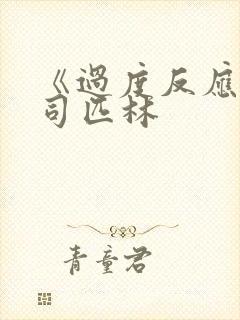 《過度反應
司匹林
青童君